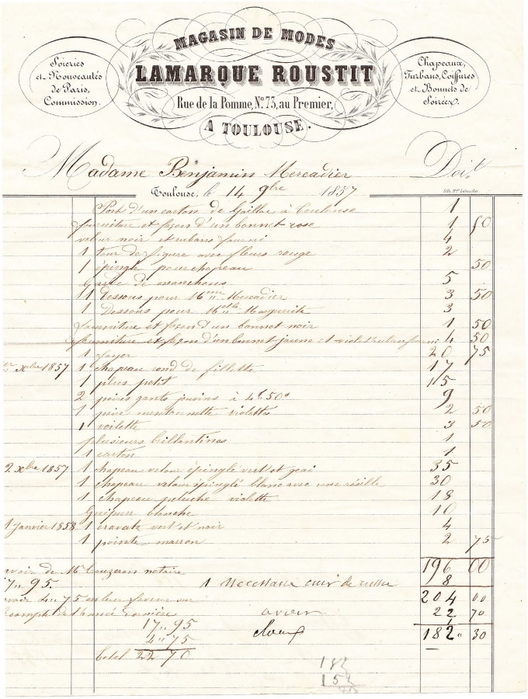 MAGASIN DE MODES
LAMARQUE ROUSTIT
Rue de la Pomme, No. 73, au Premier,
A TOULOUSE.
Soieries
et Nouveautés
de Paris,
Commission.
Chapeaux,
Turbans, Coiffures
et Bonnets de
Soirées.
Madame Benjamin Mercadier Doit
Toulouse, le 14 9bre 1857
Port d'un carton de à Toulouse 1
fourniture et façon d'un bonnet rose 1 50
velour noir et rubans fourni 4
1 tour de figure avec fleurs rouge 2
1 épingle pour chapeau 50
de manchons 5
11 Dessous pour Mme Mercadier 3 50
1 Dessous pour Mlle Marguerite 3
fourniture et façon d'un bonnet noir 1 50
fourniture et façon d'un bonnet jaune et 4 50
1 20 75
Xbre 1857 1 chapeau rond de fillette 17
1 plus petit 15
2 paires gants jouvins à 4f 50c 9
1 paire violettes 2 50
1 voilette 3 50
plusieurs brillantines 1
1 carton 1
2 Xbre 1857 1 chapeau velour épinglé vert et noir 35
1 chapeau velour épinglé blanc avec une 30
1 chapeau peluche violette 18
Guipure blanche 10
1 Janvier 1858 1 cravate vert et noir 4
1 pointe marron 2 75
notaire 196 00
17 " 95 1 Necessaire cuir de russie 8
4 " 75 204 00
avoir 22 70
17 " 95
4 " 75 182 " 30
total 22 70
182
152